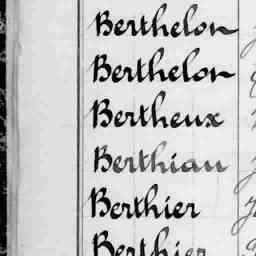 Berthelon
Berthelon
Bertheux
Berthiau
Berthier
Berthier